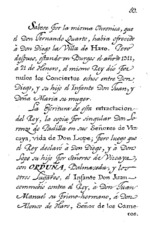 80.
Sabese por la misma Chronica, que
el Don Fernando Quarto, havia ofrecido
à Don Diego la Villa de Haro. Pero
despues, estando en Burgos el año de 1311,
à 21 de Henero, el mismo Rey dio por
nulos los Conciertos echos entre Don
Diego, y su hijo el Infante Don Juan, y
Doña Maria su muger.
La Escritura de esta retractacion
del Rey, la copia fer singular Don Lo-
renzo de Padilla en sus Señores de Viz-
caya, vida de Don Lope; fero luego que
el Rey declaró à Don Diego, y à Don
Lope su hijo por Señores de Vizcaya,
en ORDUÑA, Balmaseda, y los
otros Lugares, el Infante Don Juan
commobió contra el Rey, à Don Juan
Manuel su Primo-hermano, à Don
Alonso de Haro, Señor de los Came
ros.